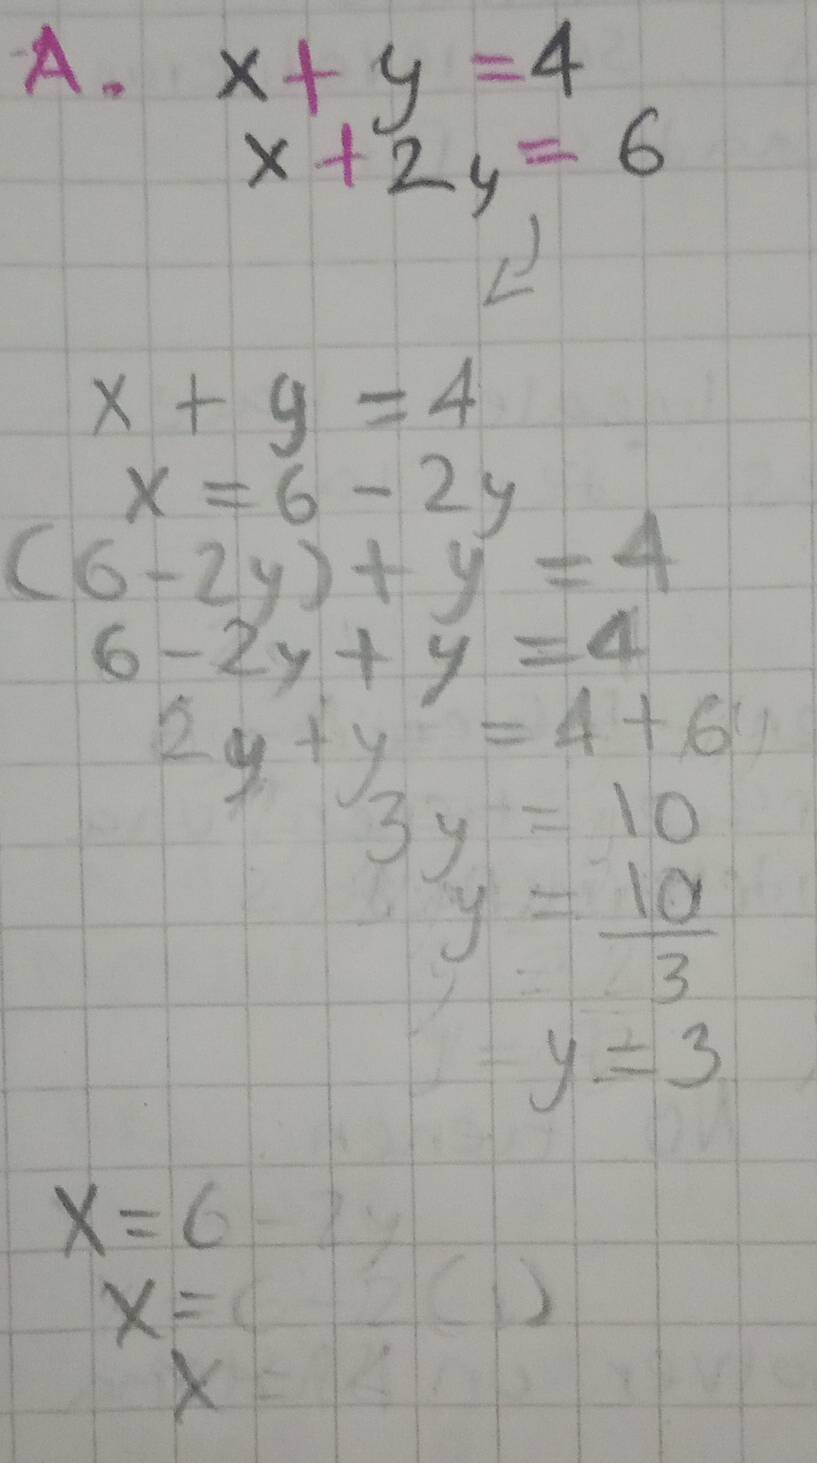 A. x + y = 4
x + 2y = 6
x + y = 4
x = 6 - 2y
(6 - 2y) + y = 4
6 - 2y + y = 4
2y + y = 4 + 6
3y = 10
y = 10/3
y = 3
x = 6 - 2y
x =
x =